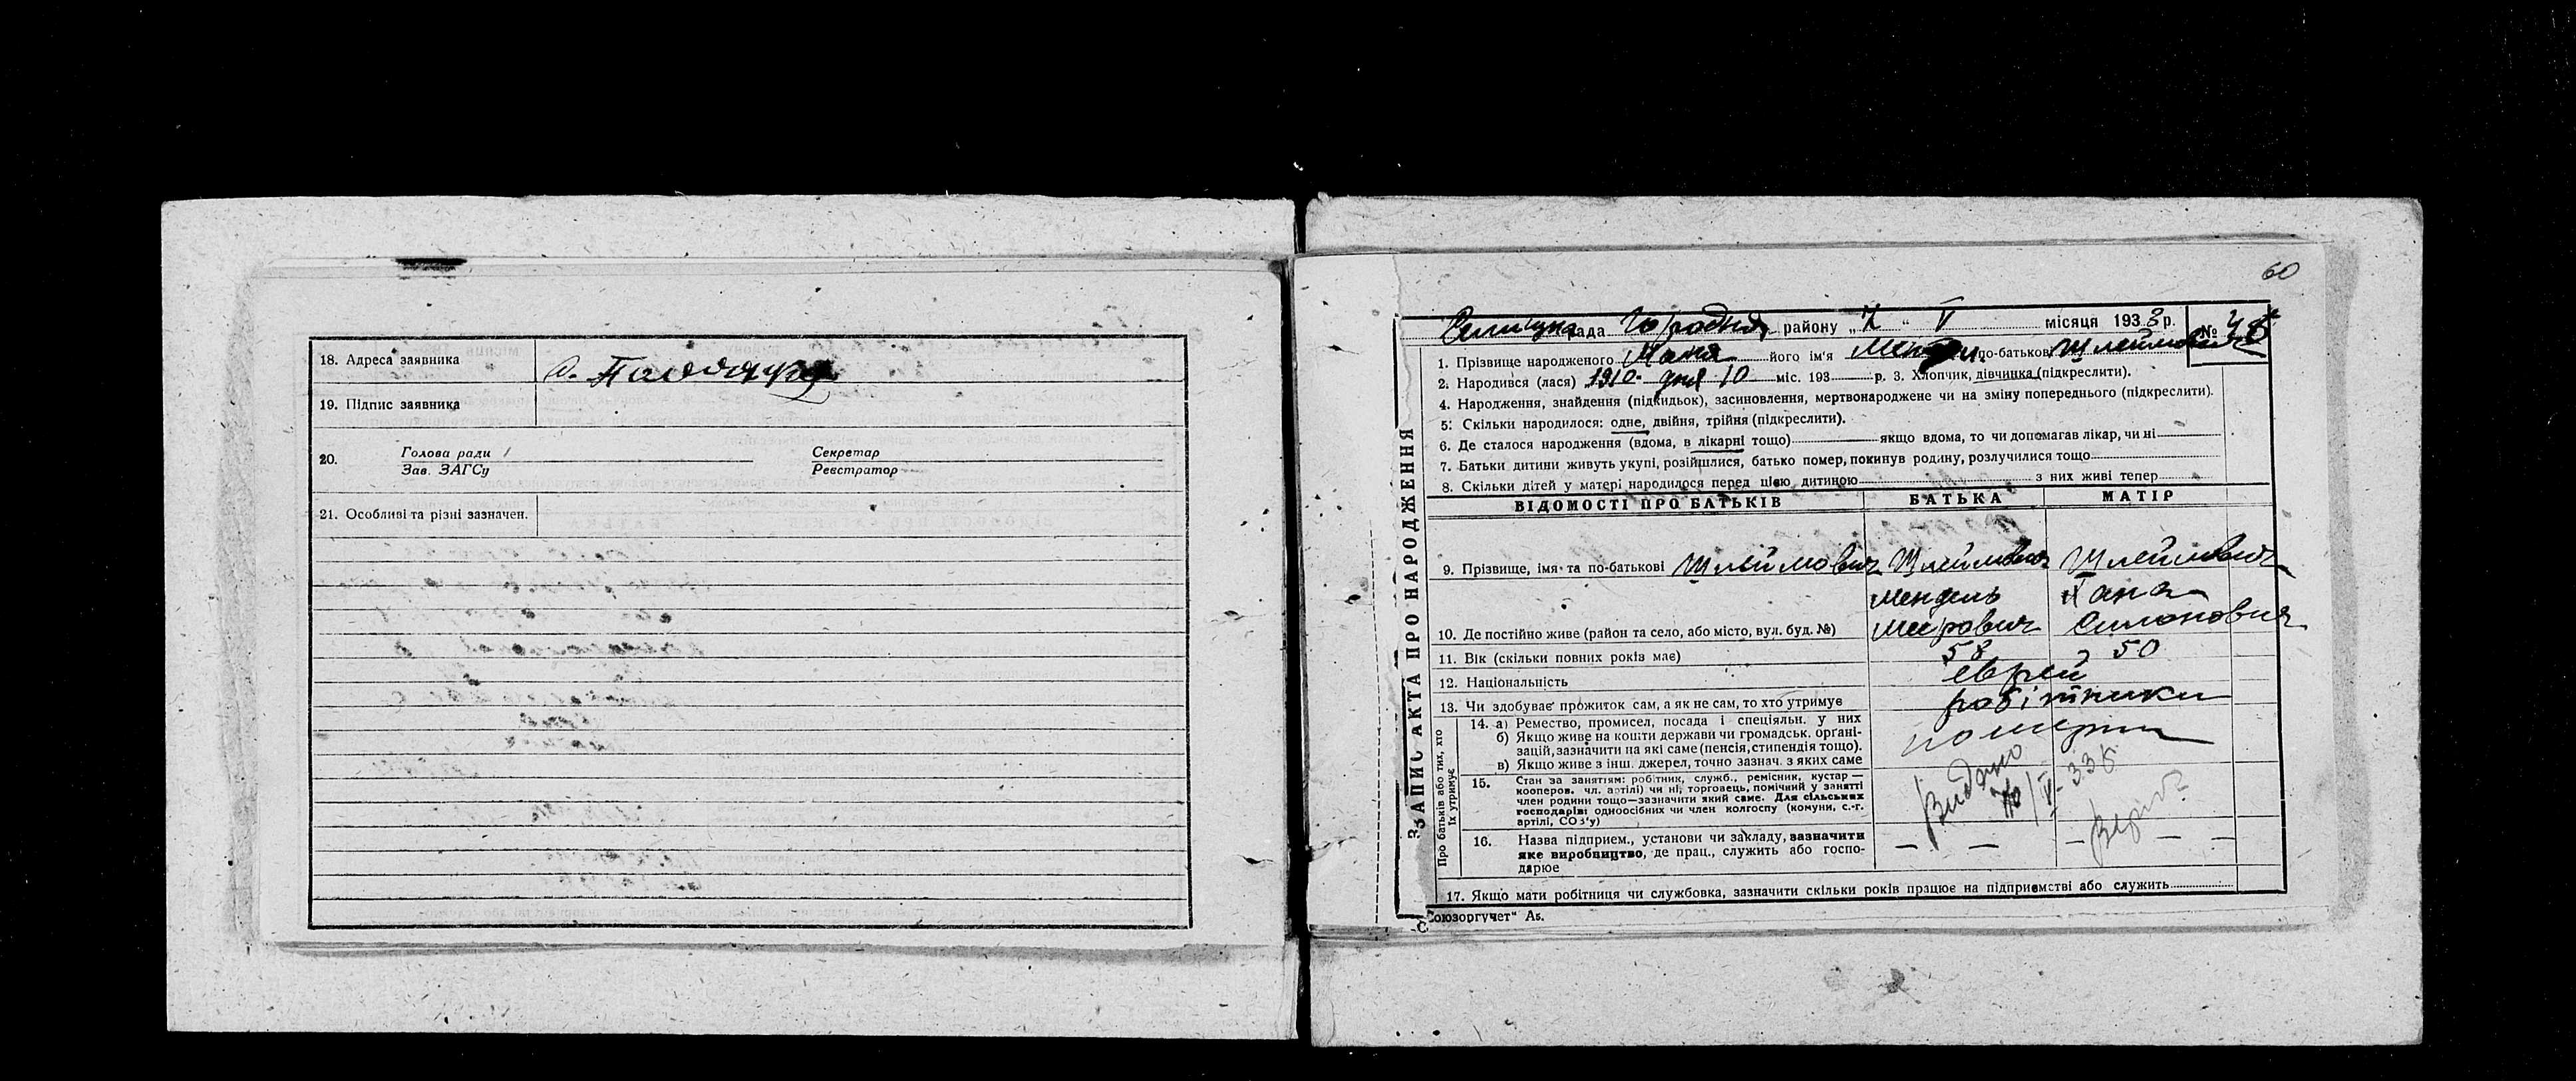 18. Адреса заявника
19. Підпис заявника
20. Голова ради Секретар
Зав. ЗАГСу Реєстратор
21. Особливі та різні зазначен.
60
Селищна рада Городня, району „7“ V місяця 1933 р. №
1. Прізвище народженого Маня його ім'я по-батькові Шлеймович
2. Народився (лася) 1910 дня 10 міс. 193 р. 3. Хлопчик, дівчинка (підкреслити).
4. Народження, знайдення (підкидьок), засиновлення, мертвонароджене чи на зміну попереднього (підкреслити).
5. Скільки народилося: одне, двійня, трійня (підкреслити).
6. Де сталося народження (вдома, в лікарні тощо) якщо вдома, то чи допомагав лікар, чи ні
7. Батьки дитини живуть укупі, розійшлися, батько помер, покинув родину, розлучилися тощо
8. Скільки дітей у матері народилося перед цією дитиною з них живі тепер
ЗАПИС АКТА ПРО НАРОДЖЕННЯ
ВІДОМОСТІ ПРО БАТЬКІВ БАТЬКА МАТІР
9. Прізвище, імя та по-батькові Шлеймович Шлеймович Шлеймович
Мендель Гана
10. Де постійно живе (район та село, або місто, вул. буд. №) Меерович Симоновна
11. Вік (скільки повних років має) 58 50
12. Національність еврей
13. Чи здобуває прожиток сам, а як не сам, то хто утримує робітники
Про батьків або тих, хто їх утримує
14. а) Ремество, промисел, посада і спеціяльн. у них
б) Якщо живе на кошти держави чи громадськ. організацій, зазначити на які саме (пенсія, стипендія тощо).
в) Якщо живе з інш. джерел, точно зазнач. з яких саме
померли
15. Стан за занятіям: робітник, служб., ремісник, кустар —
кооперов. чл. артілі) чи ні, торговець, помічний у занятті
член родини тощо—зазначити який саме. Для сільських
господарів: одноосібних чи член колгоспу (комуни, с.-г.
артілі, СОЗ'у)
Видано
16. Назва підприєм., установи чи закладу, зазначити
яке виробництво, де прац., служить або госпо-
дарює
17. Якщо мати робітниця чи службовка, зазначити скільки років працює на підприємстві або служить
„Союзоргучет“ А5.